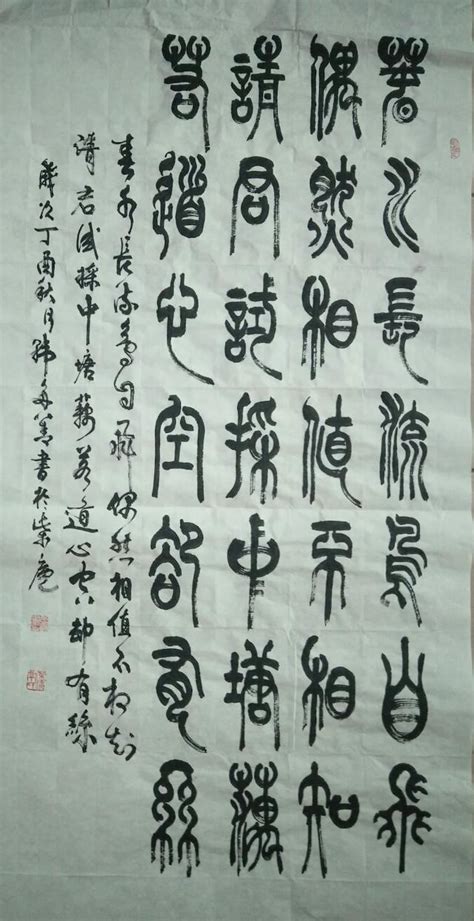 春水長流鳥自飛
偶然相值不相知
請君試採中塘藕
若道心空卻有絲
春水長流鳥自飛偶然相值不相知
請君試採中塘藕若道心空却有絲
歲次丁酉秋月善書於庵